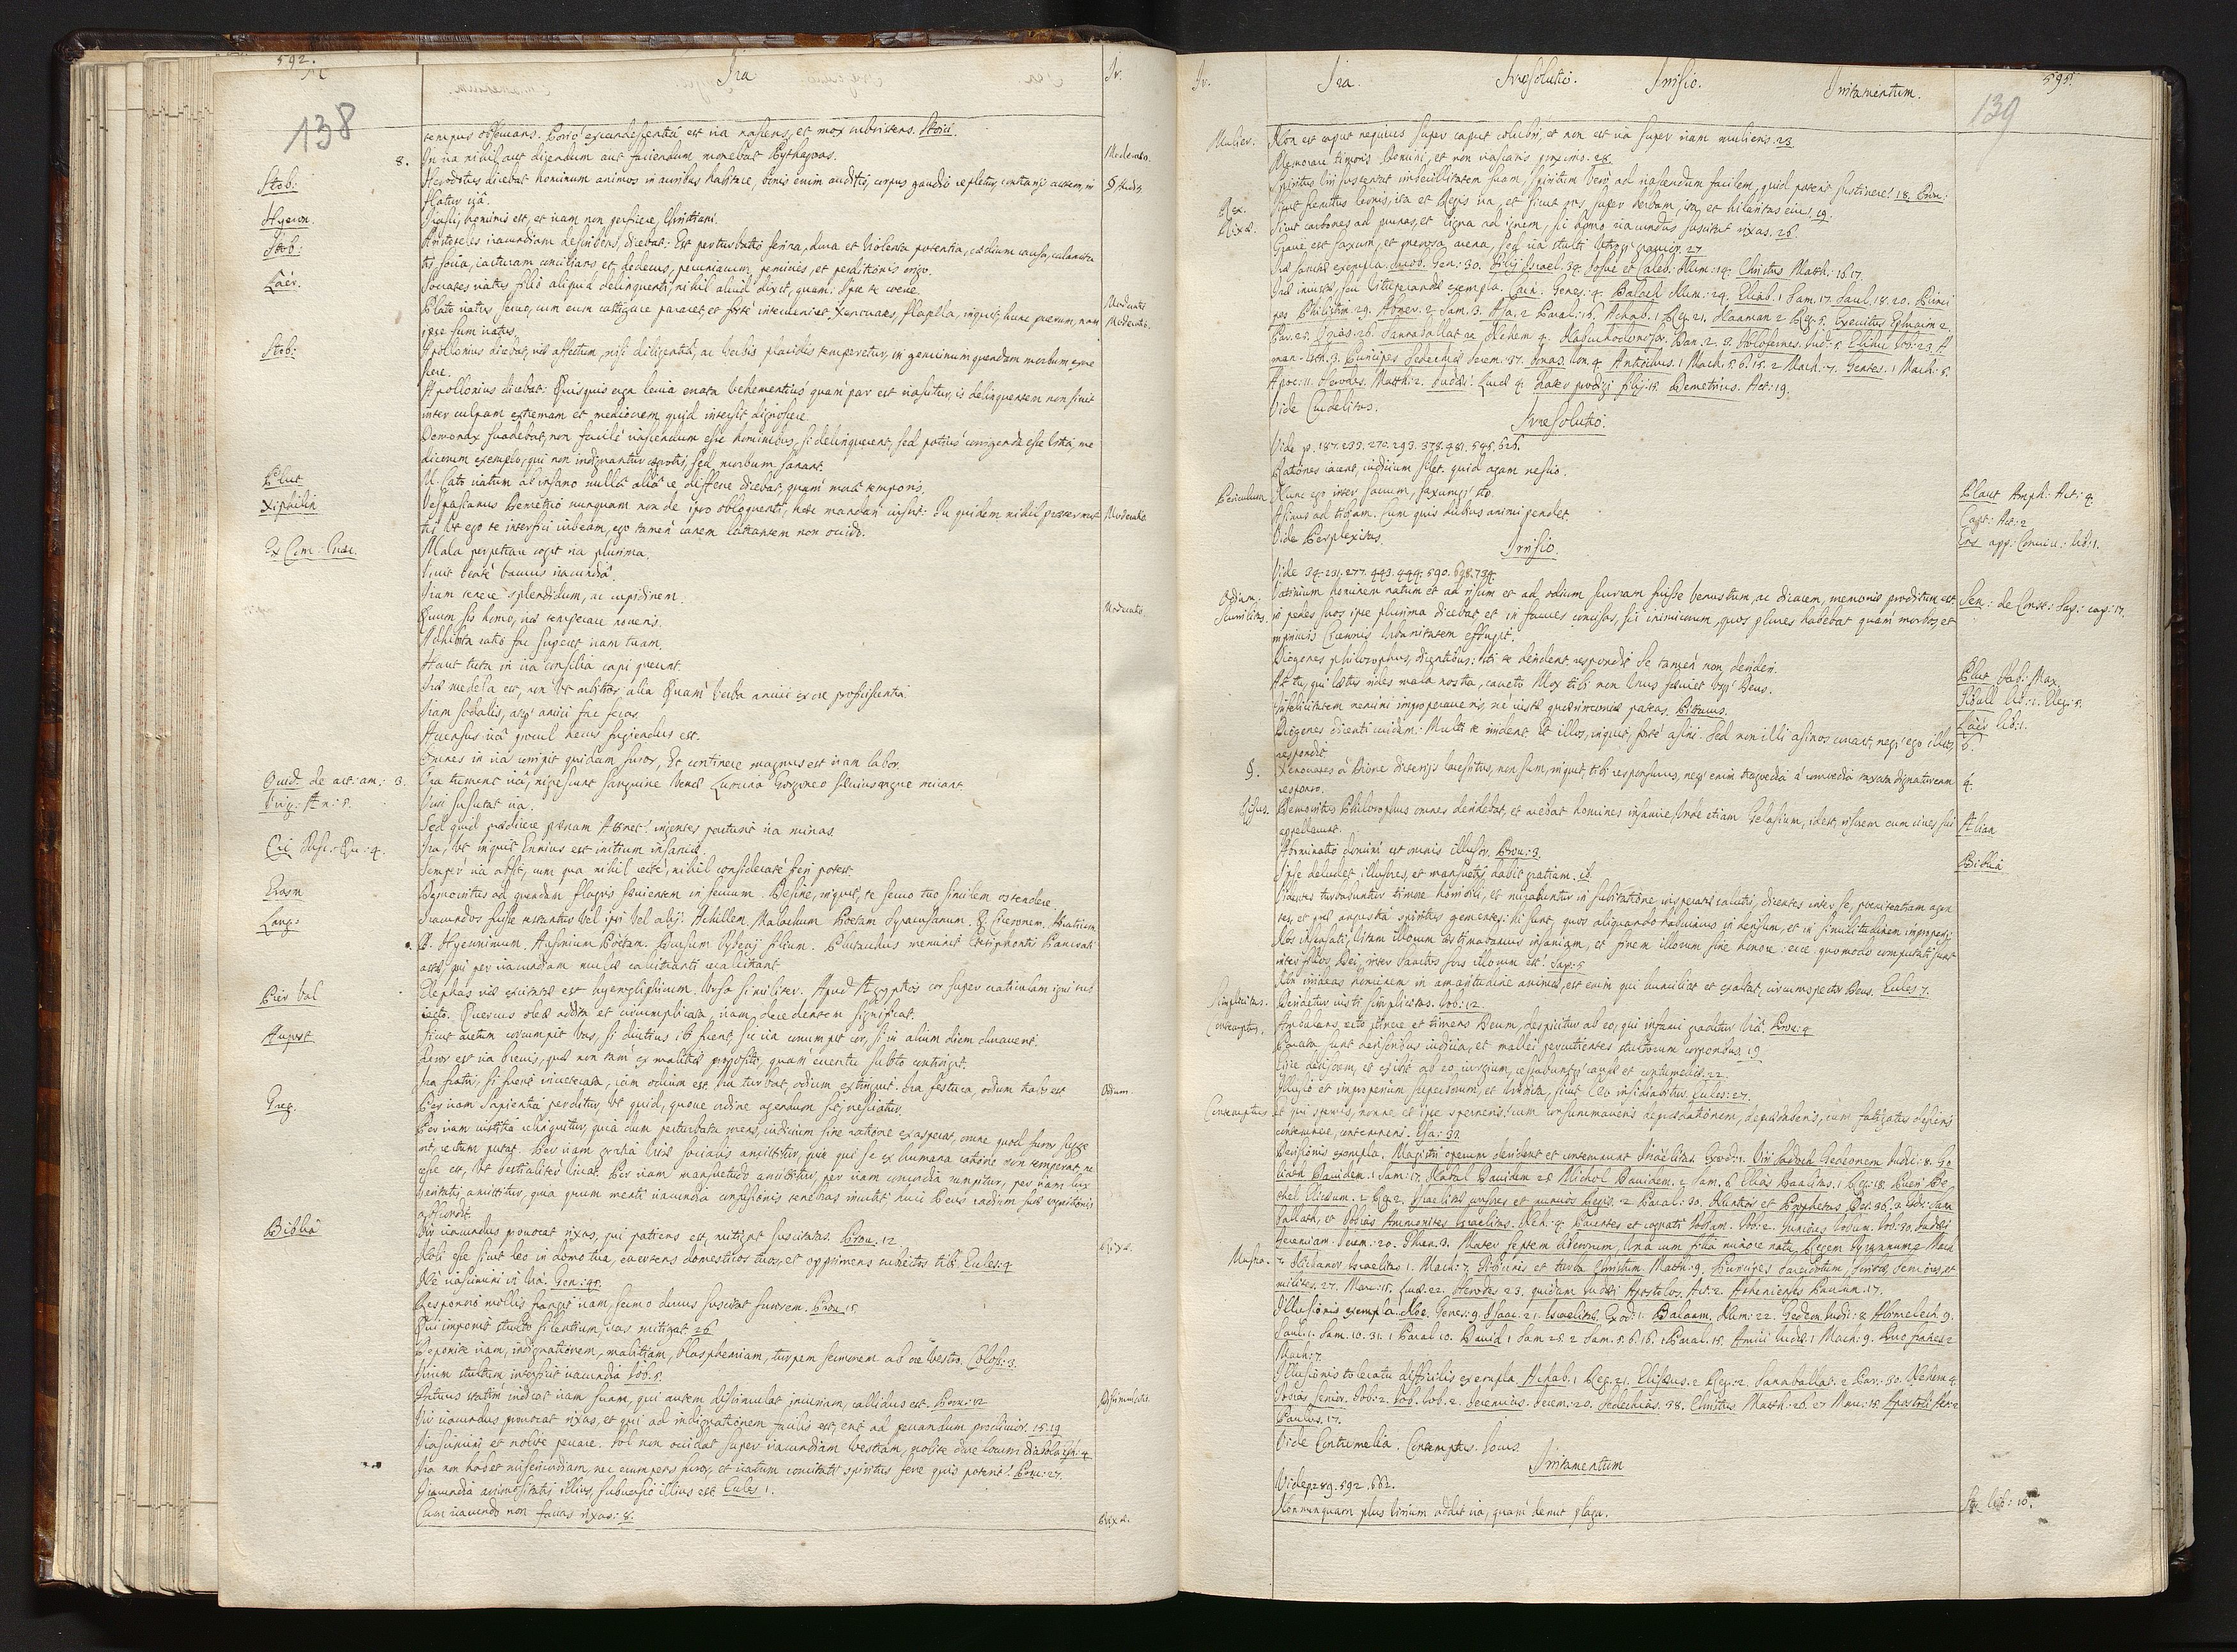 592.
Ira
Ir.
138
tempus observans. Porro excandescentia est ira nascens, et mox subsistens. Stoici.
8. In ira nihil aut dicendum aut faciendum, monebat Pythagoras.
Moderatio.
Stob: Herodotus dicebat hominum animos in auribus habitare, bonis enim auditis, corpus gaudio repletur, contrarijs autem, in
flatur irâ.
Hyeron. Irasci, hominis est, et iram non perficere, Christiani.
Stob: Aristoteles iracundiam describens, dicebat: Est perturbatio ferina, dura et violenta potentia, cædium causa, calamita
tis socia, iacturam concilians et dedecus, pecuniarum, et perditionis origo.
Laër. Socrates iratus filio aliquid delinquenti, nihil aliud dixit, quam:
Plato iratus servo, cum eum castigare pararet, et fortè intervenisset Xenocrates, flagella, inquit, hunc puerum, nam
Moderatio
ipse sum iratus.
Moderatio.
Stob: Apollonius dicebat, iræ affectum, nisi diligentiâ, ac verbis placidis temperetur, in genuinum quendam morbum eva
dere.
Apollonius dicebat: Quisquis erga levia errata vehementius quàm par est irascitur, is delinquentem non sinit
inter culpam extremam et mediocrem quid intersit dignoscere.
Demonax suadebat, non facilè irascendum esse hominibus, si delinquerent, sed potius corrigenda esse vitia, me
dicorum exemplo, qui non indignantur ægrotis, sed morbum sanant.
Plut M. Cato iratum ab insano nullâ aliâ re differre dicebat, quàm morâ temporis.
Xiphilin Vespasianus Demetrio nunquam non de ipso obloquenti, hæc mandari iussit: Tu quidem nihil prætermit
Moderatio
tis, ut ego te interfici iubeam, ego tamen canem latrantem non occido.
Ex Com: Græc. Mala perpetrare cogit ira plurima.
Vivit beatè vacuus iracundiâ.
Iram tenere splendidum, ac cupidinem.
Quum sis homo, iræ temperare noveris.
Moderatio
Adhibita ratio fac superet iram tuam.
Haut tuta in ira consilia capi queunt.
Iræ medela est, non ut arbitror, alia Quàm verba amici ex ore proficiscentia.
Iram sodalis, atque amici fac feras.
Accensus irâ procul hercus fugiendus est.
Omnes in ira corripit quidam furor, Et continere magnus est iram labor.
Ovid. de art: am: 3. Ora tument irâ, nigrescunt sanguine venæ Lumina Gorgoneo sævius angue micant.
Virg: Æn: 5. Vires suscitat ira.
Sed quid prodiere Attonet! ingentes parturit ira minas.
Cic Tusc: Qu: 4. Ira, ut inquit Ennius est initium insaniæ.
Semper ira absit, cum qua nihil rectè, nihil consideratè fieri potest.
Erasm Democritus ad quendam flagris sævientem in servum. Desine, inquit, te servo tuo similem ostendere.
Lang: Iracundos fuisse testantur vel ipsi vel alij: Achillem. Malachum Poëtam Syracusanum. Q. Ciceronem. Horatium
D. Hyeronimum. Aufonium Poëtam. Dursum Sydenij filium. Plutarchus meminit Ctesiphontis Pancrati
astæ, qui per iracundiam mulæ calcitranti recalcitrant.
Pier Val Elephas iræ excitatæ est hyeroglyphicum. Ursa similiter. Apud Ægyptios cor super craticulam igni sub
iecto. Quercus oleæ addita et circumplicata, iram decedentem significat.
August. Sicut acetum corrumpit vas, si diutius ibi fuerit, sic ira corrumpit cor, si in alium diem duraverit.
Peior est ira brevis, quæ non tam ex malitiæ proposito, quàm eventu subito contingit.
Ira fratri, si fuerit inveterata, iam odium est. Ira turbat, odium extinguit. Ira festuca, odium trabs est
Odium.
Greg. Per iram sapientia perditur, ut quid, quove ordine agendum sit, nesciatur.
Per iram iustitia relinquitur, quia dum perturbata mens, iudicium sine ratione exasperat, omne quod furor sugge
rit, rectum putat. Per iram gratia vitæ socialis amittitur, quia qui se ex humana ratione non temperat, ne
cesse est, ut bestialiter vivat. Per iram mansuetudo amittitur, per iram concordia rumpitur, per iram lux
veritatis amittitur, quia quum menti iracundia confusionis tenebras incutit, huic Deus radium suæ cognitionis
abscondit.
Biblia Vir iracundus provocat rixas, qui patiens est, mitigat suscitatas. Prov. 15
Rixa.
Noli esse sicut leo in domo tua, evertens domesticos tuos, et opprimens subiectos tibi. Eccles: 4
Ne irascimini in via. Gen: 45.
Responsio mollis frangit iram, sermo durus suscitat furorem. Prov 15
Qui imponit stulto silentium, iras mitigat. 26
Deponite iram, indignationem, malitiam, blasphemiam, turpem sermonem ab ore vestro. Coloss: 3.
Virum stultum interficit iracundia Job. 5.
Fatuus statim indicat iram suam, qui autem dissimulat iniuriam, callidus est. Prov: 12
Dissimulatio
Vir iracundus provocat rixas, et qui ad indignationem facilis est, erit ad peccandum proclivior. 15. 19
Irascimini et nolite peccare. Sol non occidat super iracundiam vestram, nolite dare locum diabolo Eph: 4
Ira non habet misericordiam, nec erumpens furor, et iratum concitati spiritus ferre quis poterit! Prov: 27.
Iracundia animositatis illius, subversio illius est Eccles 1.
Cum iracundo non facias rixas: 8.
Rixa.
Ir. Ira. Irresolutio. Irrisio. Irritamentum. 595.
139
Mulier. Non est caput nequius super caput colubri, et non est ira super iram mulieris. 25
Memorare timoris Domini, et non irascaris proximo. 28.
Spiritus viri sustentat imbecillitatem suam, spiritum verò ad irascendum facilem, quis poterit sustinere! 18. Prov:
Rex. Sicut fremitus leonis, ita et Regis ira, et sicut ros super herbam, ita et hilaritas eius, 19.
Rixa. Sicut carbones ad prunas, et ligna ad ignem, sic homo iracundus suscitat rixas. 26.
Grave est saxum, et onerosa arena, sed ira stulti utroque gravior 27
Iræ sanctæ exempla. Jacob. Gen: 30. Filij Israel. 34. Josue et Caleb. Num: 14. Christus Matth: 16. 17.
Iræ iniustæ, seu vituperandæ exempla. Cain. Genes: 4. Balach Num: 24. Eliab. 1 Sam. 17. Saul. 18. 20. Princi
pes Philistim. 29. Abner. 2 Sam. 3. Asa. 2 Paral: 16. Achab. 1 Reg. 21. Naaman 2 Reg: 5. Exercitus Ephraim 2.
Par. 25. Ozias. 26. Sannaballat ac Nehem 4. Nabuchodonosor. Dan. 2. 3. Holofernes. Jud: 5. Elihu Job: 32. A
man. Esth. 3. Principes Sedechiæ Jerem: 37. Jonas. Jon. 4. Antiochus. 1 Mach. 3. 6. 15. 2 Mach. 7. Gentes. 1 Mach: 5.
Apoc: 11. Herodes. Matth: 2. Judæi. Lucæ 4. Frater prodigi filij. 15. Demetrius. Act: 19.
Vide Crudelitas.
Irresolutio.
Vide p. 187. 233. 270. 293. 378. 481. 545. 626.
Rationes iacent, iudicium silet. quid agam nescio.
Periculum. Nunc ego inter sacrum, saxumque sto.
Plaut Amph: Act: 4.
Asinus ad tibiam. Cum quis dubius animi pendet.
Capt: Act: 2
Vide Perplexitas.
Eras app: Convic: lib: 1.
Irrisio.
Vide 34. 231. 277. 443. 444. 590. 698. 734.
Odium. Vatinium hominem natum et ad risum et ad odium scurram fuisse venustum, ac dicacem, memoriæ proditum est
Sen: de Const: Sap: cap: 17.
Scurrilitas. in pedes suos, ipse plurima dicebat et in fauces concisas, sic inimicorum, quos plures habebat quàm morbos, et
inprimis Ciceronis urbanitatem effugit.
Diogenes philosophus, dicentibus: isti te derident, respondit Se tamen non derideri.
Plut Fab: Max.
At tu, qui lætus rides mala nostra, caveto Mox tibi non unus sæviet usque Deus.
Tibull lib: 1. Eleg: 5.
Infelicitatem nemini improperaveris, ne iustæ querimoniæ pateas. Pittacus.
Laër: lib: 1.
Diogenes dicenti cuidam: Multi te irrident Et illos, inquit, fortè asini. Sed non illi asinos curant, neque ego illos
6.
respondit.
§. Xenocrates à Bione dicterijs lacessitus, non sum, inquit, tibi responsurus, neque enim tragœdia à comœdia taxata dignaturam
4.
responso.
Risus. Democritus Philosophus omnes deridebat, et aiebat homines insanire, unde etiam Gelasium, id est, risorem eum cives sui
Ælian
appellarunt.
Abominatio Domini est omnis illusor. Prov: 3.
Biblia
Ipse deludet illusores, et mansuetis dabit gratiam. ib.
Videntes turbabuntur timore horribili, et mirabuntur in subitatione insperatæ salutis, dicentes inter se, pœnitentiam agen
tes, et præ angustia spiritus gementes: hi sunt, quos aliquando habuimus in derisum, et in similitudinem improperij
Nos insensati, vitam illorum æstimabamus insaniam, et finem illorum sine honore: ecce quomodo computati sunt
inter filios Dei, inter Sanctos sors illorum est! Sap: 5
Non irrideas hominem in amaritudine animæ, est enim qui humiliat et exaltat, circumspector Deus. Eccles 7.
Simplicitas. Deridetur iusti simplicitas. Job: 12.
Contemptus. Ambulans recto itinere et timens Deum, despicitur ab eo, qui infami graditur viâ. Prov: 14
Parata sunt derisoribus iudicia, et mallei percutientes stultorum corporibus. 19
Eiice derisorem, et exibit ab eo iurgium, cessabuntque causæ et contumeliæ. 22.
Illusio et improperium superborum, et vindicta, sicut leo insidiabitur. Eccles: 27.
Contemptus. Et qui spernis, nonne et ipse sperneris! cum consummaveris deprædationem, deprædaberis, cum fatigatus desieris
contemnere, contemneris. Isa: 33.
Derisionis exempla. Magistri operum derident et contemnunt Israëlitas Exod: 1. Viri Sadoch Gedeonem Judic: 8. Go
liath Davidem. 1 Sam: 17. Nabal Davidem 25 Michol Davidem. 2 Sam. 6 Elias Baalitas. 1 Reg: 18. Pueri Be
thel Eliseum. 2 Reg. 2. Israelitæ cursores et nuncios Regis. 2 Paral: 30. Nuncios et Prophetas Dei. 36. 2 Esdr: Sana
ballath, et Tobias Ammonites Israelitas. Neh: 4. Parentes et cognati Tobiam. Tob: 2. Juniores Jobum. Job: 30. Judæi
Jeremiam. Jerem: 20. Thren. 3. Mater septem liberorum, una cum filio minore natu, Regem tyrannum. 2 Mach
7. Nichanor Israelitas 1. Mach: 7. Tibicinis et turba Christum. Matth: 9. Principes Sacerdotum, Scribæ, Seniores, et
milites. 27. Marc: 15. Luc. 22. Herodes 23. quidam Judæi Apostolos. Act: 2. Athenienses Paulum. 17.
Illusionis exempla. Noe. Genes: 9. Isaac. 21. Israelitæ. Exod: 1. Balaam. Num: 22. Gedeon. Judic: 8. Abimelech. 9.
Saul. 1. Sam. 10. 31. 1 Paral 10. David 1 Sam 25. 2 Sam. 5. 6. 16. 1 Paral. 15. Amici Judæ. 1 Mach: 9.
Mach: 7.
Illusionis toleratu difficilis exempla. Achab. 1 Reg. 21. Elisæus. 2 Reg: 2. Sannaballat. 2 Par: 30. Nehem 4.
Tobias senior. Tob: 2. Job. Job. 2. Jeremias. Jerem: 20. Sedechias. 38. Christus Matth: 26. 27 Marc: 15. Apostoli Act: 2
Paulus. 17.
Vide Contumelia. Contemptus. Jocus.
Irritamentum
Vide p 289. 592. 662.
Nonnunquam plus virium addit ira, quàm demit plaga.
lib: 10.